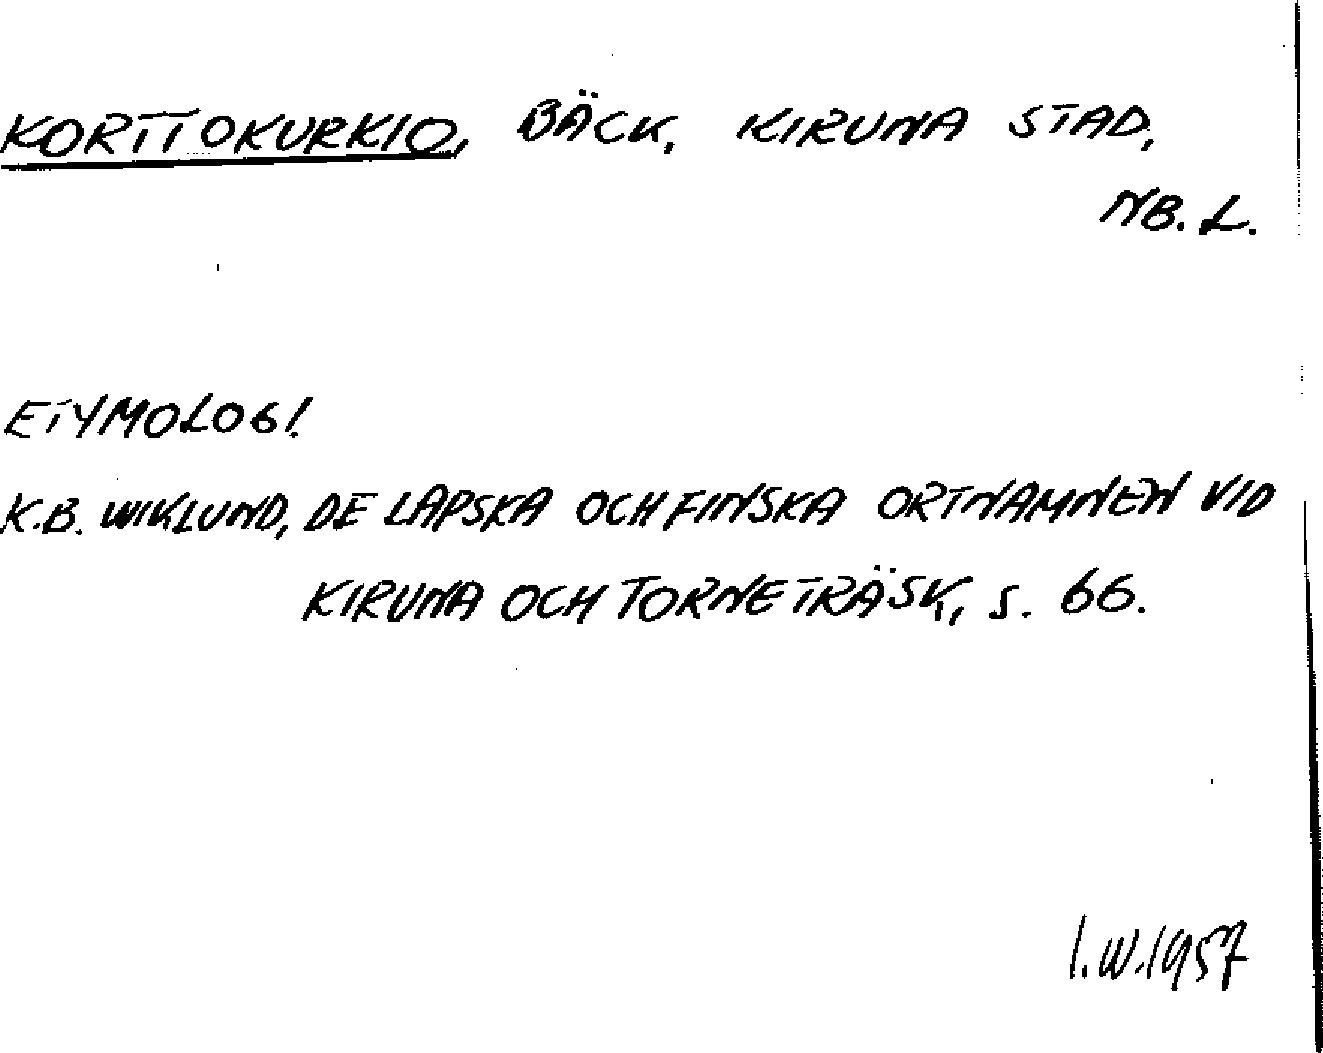 KORTTOKURKIO, BÄCK, KIRUNA STAD,
NB.L.
ETYMOLOGI.
K.B. WIKLUND, DE LAPSKA OCH FINSKA ORTNAMNEN VID
KIRUNA OCH TORNETRÄSK, S. 66.
I.W.1957